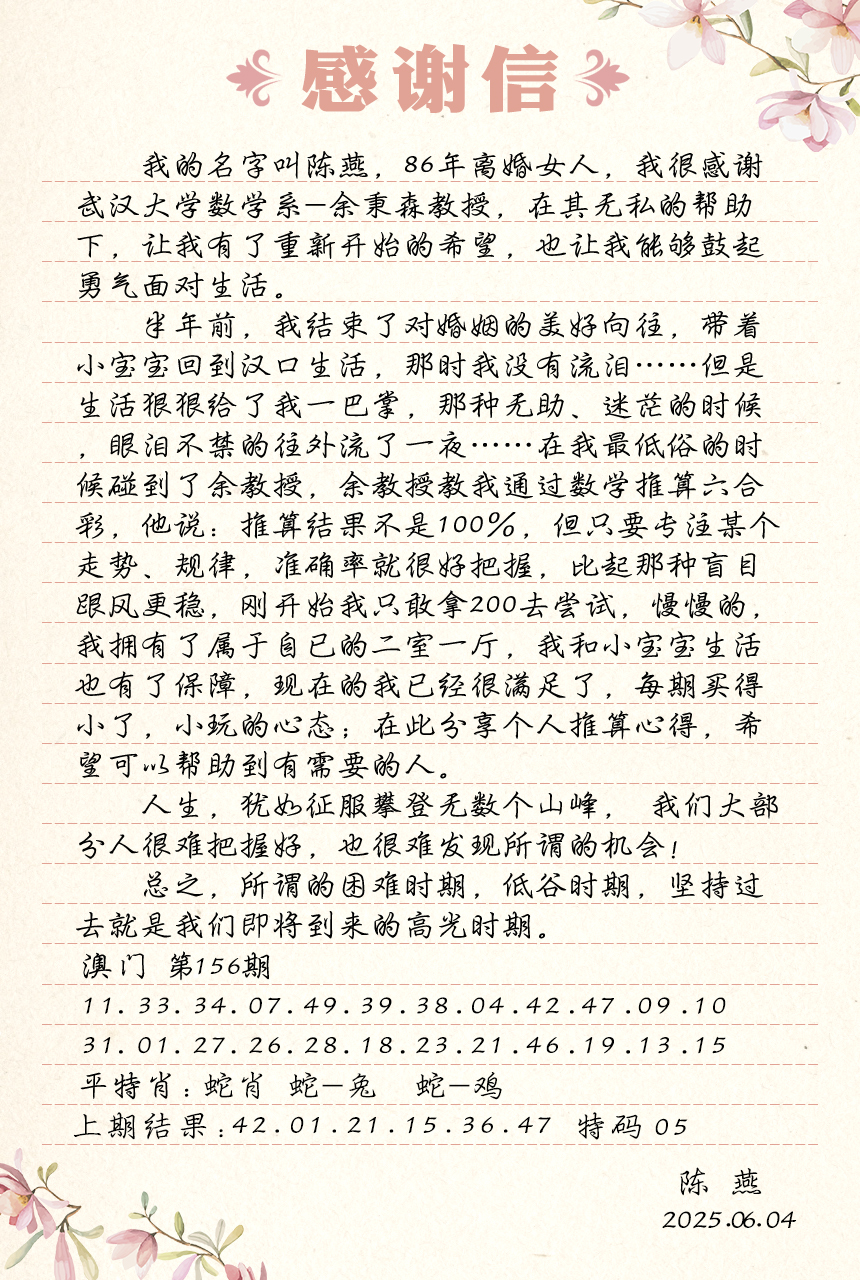 感谢信
我的名字叫陈燕，86年离婚女人，我很感谢
武汉大学数学系—余秉森教授，在其无私的帮助
下，让我有了重新开始的希望，也让我能够鼓起
勇气面对生活。
半年前，我结束了对婚姻的美好向往，带着
小宝宝回到汉口生活，那时我没有流泪……但是
生活狠狠给了我一巴掌，那种无助、迷茫的时候
，眼泪不禁的往外流了一夜……在我最低俗的时
候碰到了余教授，余教授教我通过数学推算六合
彩，他说：推算结果不是100%，但只要专注某个
走势、规律，准确率就很好把握，比起那种盲目
跟风更稳，刚开始我只敢拿200去尝试，慢慢的，
我拥有了属于自已的二室一厅，我和小宝宝生活
也有了保障，现在的我已经很满足了，每期买得
小了，小玩的心态；在此分享个人推算心得，希
望可以帮助到有需要的人。
人生，犹如征服攀登无数个山峰， 我们大部
分人很难把握好，也很难发现所谓的机会！
总之，所谓的困难时期，低谷时期，坚持过
去就是我们即将到来的高光时期。
澳门 第156期
11.33.34.07.49.39.38.04.42.47.09.10
31.01.27.26.28.18.23.21.46.19.13.15
平特肖：蛇肖 蛇—兔 蛇—鸡
上期结果：42.01.21.15.36.47 特码 05
陈 燕
2025.06.04